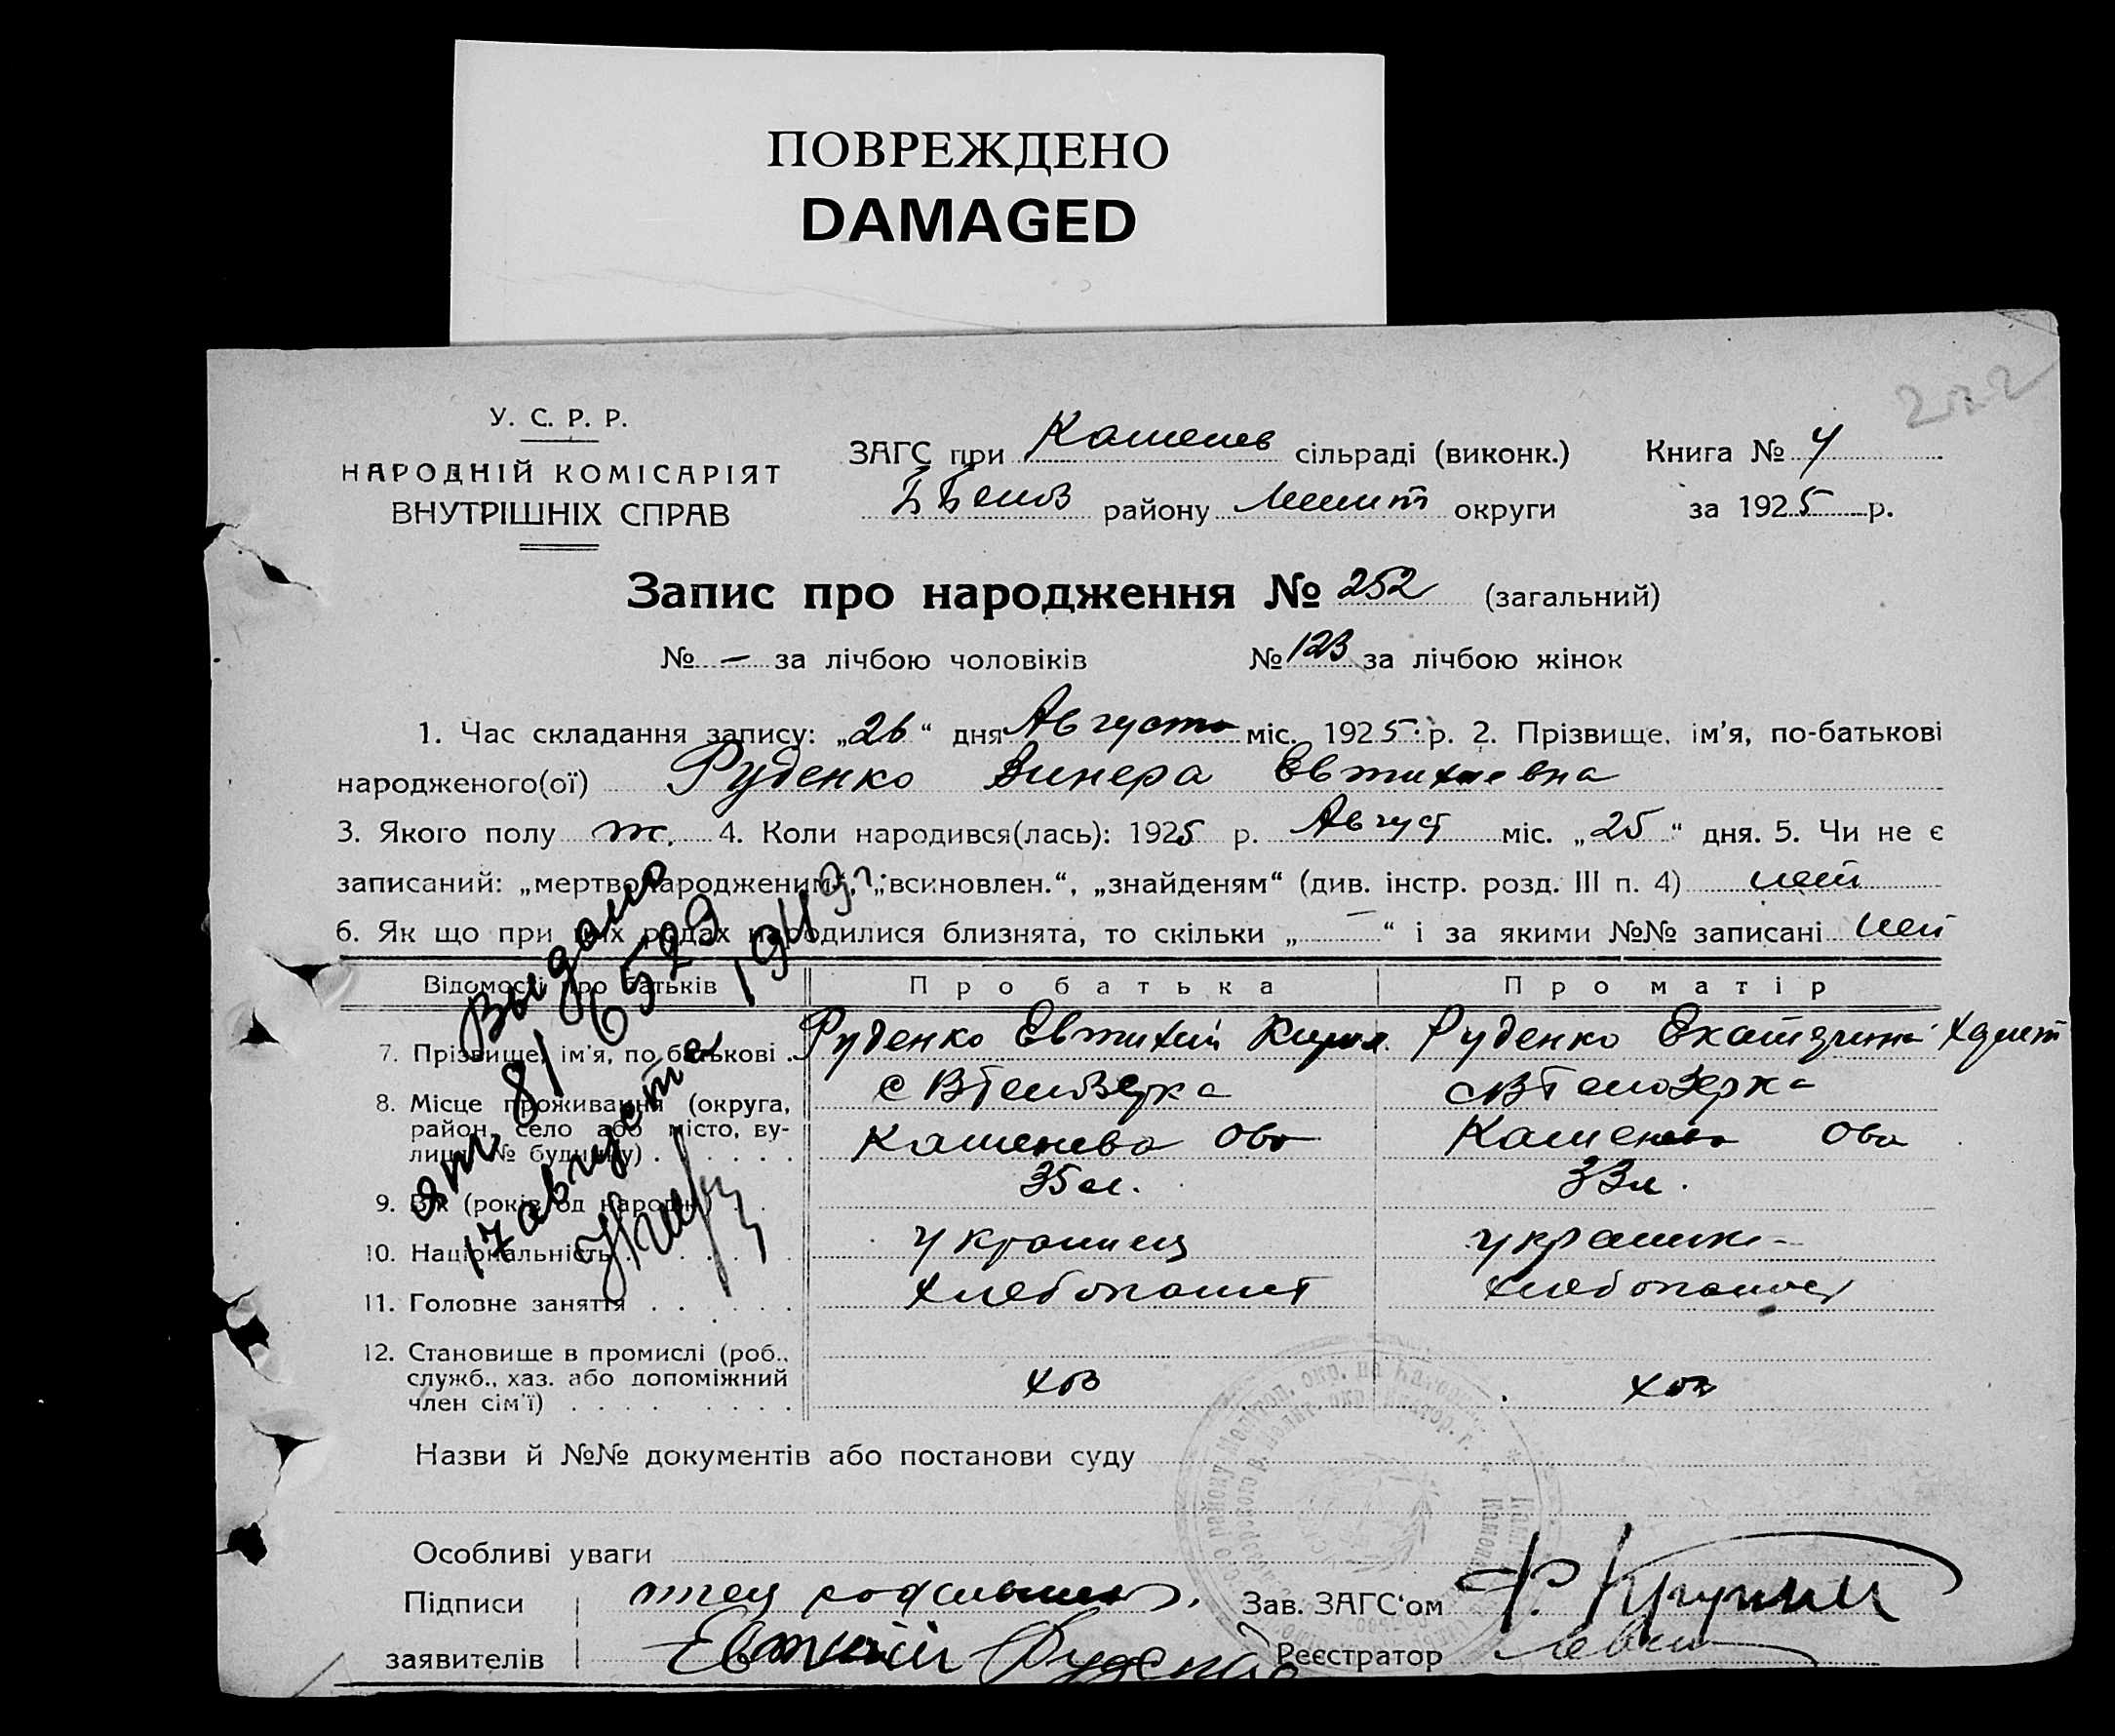 ПОВРЕЖДЕНО
DAMAGED
222
У. С. Р. Р.
НАРОДНІЙ КОМІСАРІЯТ
ВНУТРІШНІХ СПРАВ
ЗАГС при Каменев сільраді (виконк.) Книга № 4
району Мелит округи за 1925 р.
Запис про народження № 252 (загальний)
№ — за лічбою чоловіків № 123 за лічбою жінок
1. Час складання запису: „26“ дня Августа міс. 1925 р. 2. Прізвище, ім'я, по-батькові
народженого(ої) Руденко Винера Евтихиевна
3. Якого полу ж. 4. Коли народився(лась): 1925 р. Август міс. „25“ дня. 5. Чи не є
записаний: „мертвонародженим“, „всиновлен.“, „знайденям“ (див. інстр. розд. III п. 4) нет
6. Як що при цих родах народилися близнята, то скільки „—“ і за якими №№ записані нет
Выдано
8/ 6529
17 августа 1943 г.
Відомості про батьків Про батька Про матір
7. Прізвище, ім'я, по батькові . Руденко Евтихий Кирил. Руденко Екатерина
8. Місце проживання (округа,
район, село або місто, ву-
лиця, № будинку) . . . . . . Каменева Ова Каменева Ова
9. Вік (років од народж.) . . 35 л. 33 л.
10. Національність . . . . . украинец украинка
11. Головне заняття . . . . . . хлебопашец хлебопашец
12. Становище в промислі (роб.,
служб., хаз. або допоміжний
член сім'ї) . . . . . . . . . хоз хоз
Назви й №№ документів або постанови суду
Особливі уваги
Підписи отец Зав. ЗАГС'ом
заявителів Евтихий Руденко Реєстратор